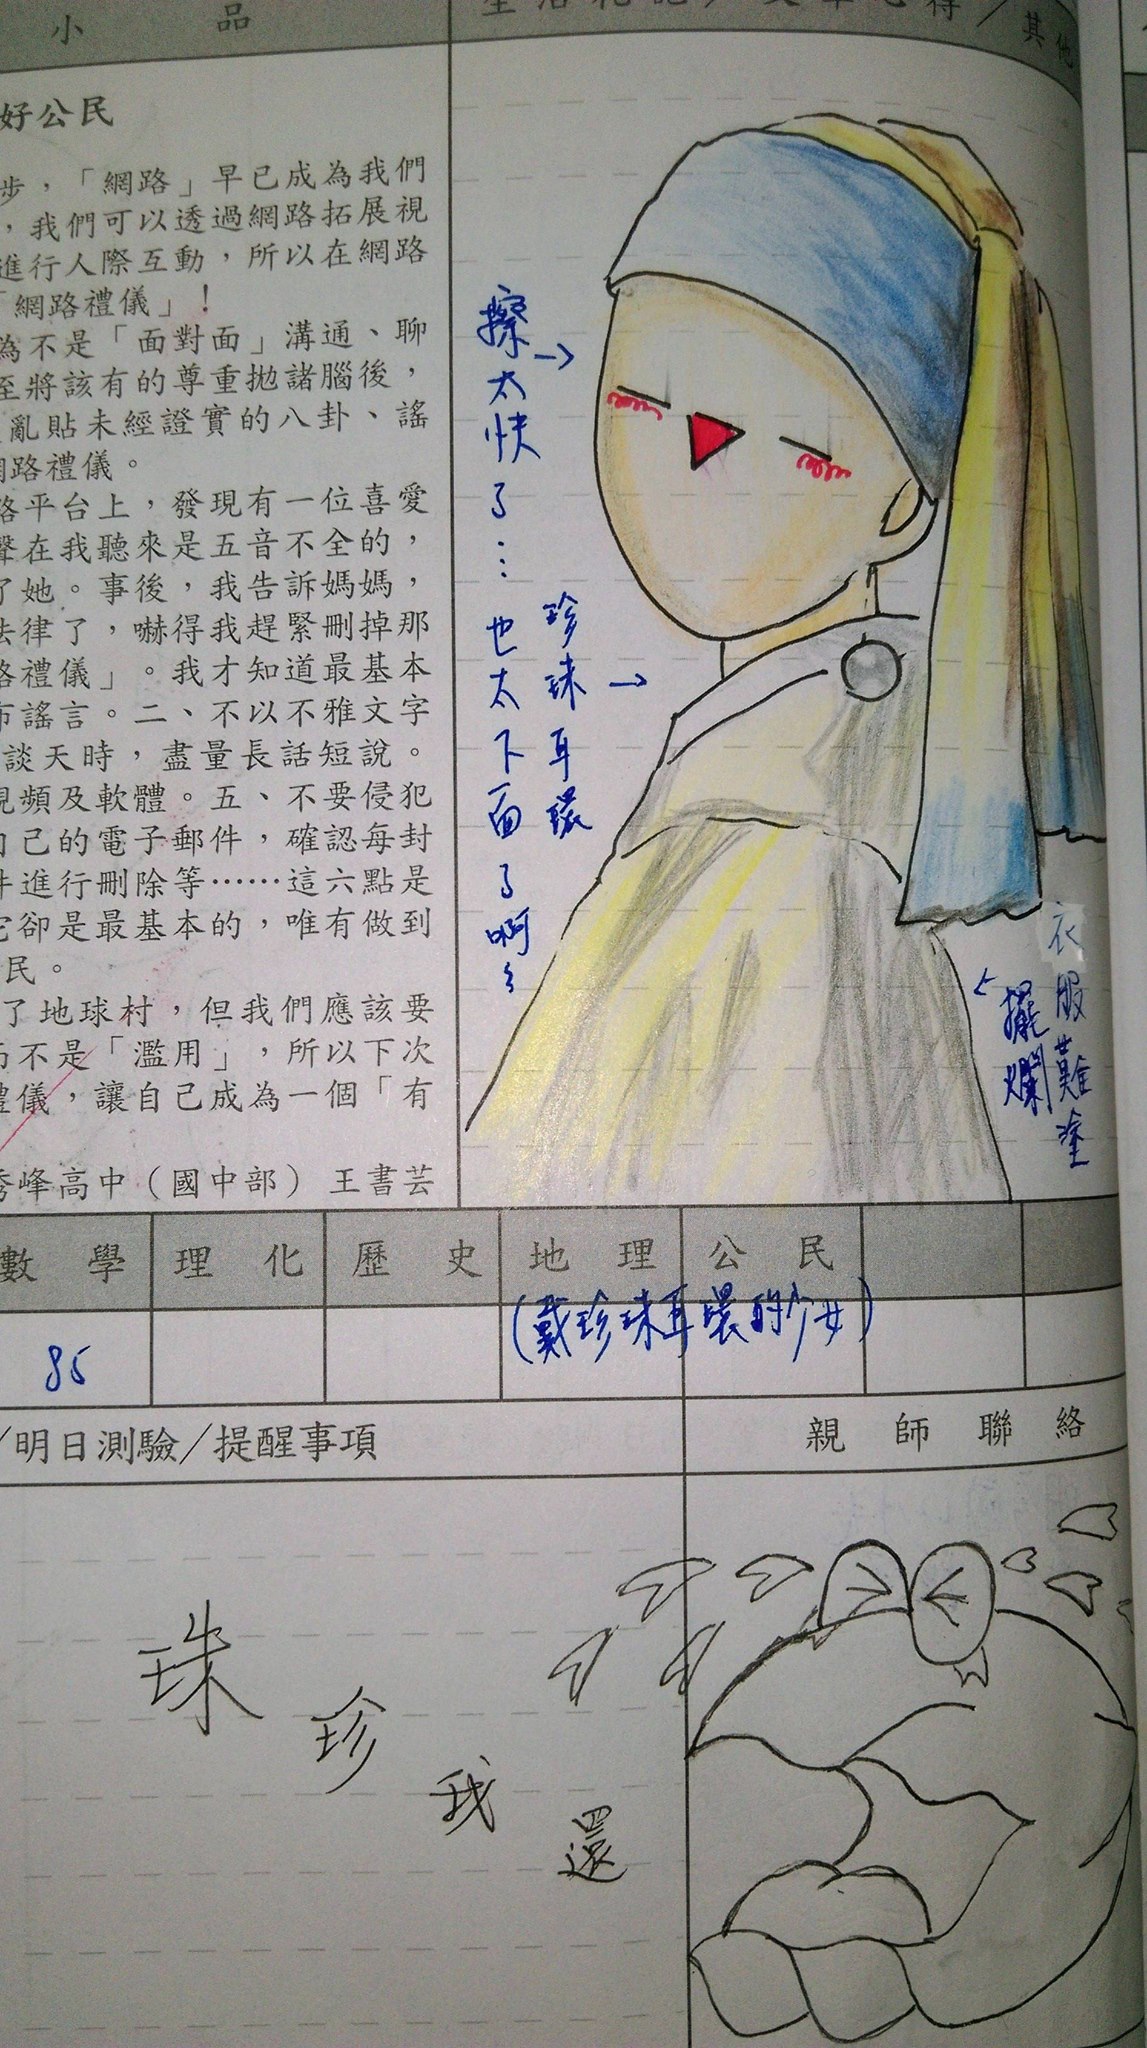 小品
生活札記/文章心得/其他
好公民
步，「網路」早已成為我們
，我們可以透過網路拓展視
進行人際互動，所以在網路
「網路禮儀」！
為不是「面對面」溝通、聊
至將該有的尊重拋諸腦後，
亂貼未經證實的八卦、謠
網路禮儀。
路平台上，發現有一位喜愛
聲在我聽來是五音不全的，
了她。事後，我告訴媽媽，
法律了，嚇得我趕緊刪掉那
路禮儀」。我才知道最基本
布謠言。二、不以不雅文字
談天時，盡量長話短說。
視頻及軟體。五、不要侵犯
自己的電子郵件，確認每封
件進行刪除等……這六點是
它卻是最基本的，唯有做到
民。
了地球村，但我們應該要
而不是「濫用」，所以下次
禮儀，讓自己成為一個「有
秀峰高中（國中部） 王書芸
擦太快了…也太下面了啊
珍珠耳環→
衣服難塗
擺爛
數學 理化 歷史 地理 公民
85
(戴珍珠耳環的少女)
/明日測驗/提醒事項
親師聯絡
還我珍珠